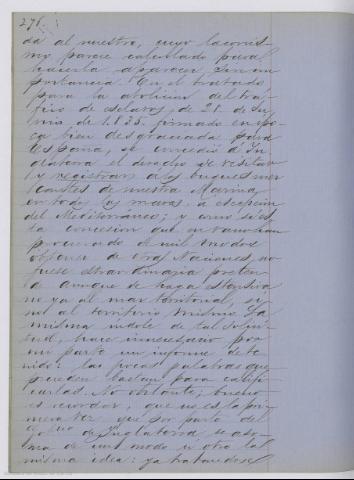 276.
da al nuestro, cuyo laconis-
mo parece calculado para
hacerla aparecer sin im
portancia. En el tratado
para la abolicion del trá-
fico de esclavos de 28 de Ju
nio de 1.835. firmado en épo
ca bien desgraciada para
España, se concedió á In
glaterra el derecho de visitar
y registrar a los buques mer
cantes de nuestra Marina
en todos los mares, a escepcion
del Mediterráneo; y como si es
ta concesion que en vano han
procurado de mil modos
obtener de otras Naciones, no
fuese estraordinaria preten
de aunque se haga estensiva
no ya al mar territorial, si
no al territorio mismo. La
misma índole de tal solici-
tud, hace innecesario por
mi parte un informe dete
nido: las pocas palabras que
preceden bastan para califi
carlas. No obstante, bueno
es recordar, que no es la pri
mera vez que por parte del
de Inglaterra, se aso-
ma de un modo u otro la
misma idea: ya tratandose